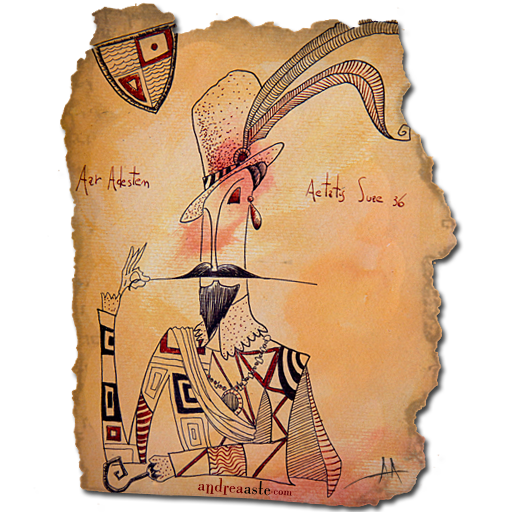 Azr Adesten
Aetatis Suae 36
AA
andreaaste.com